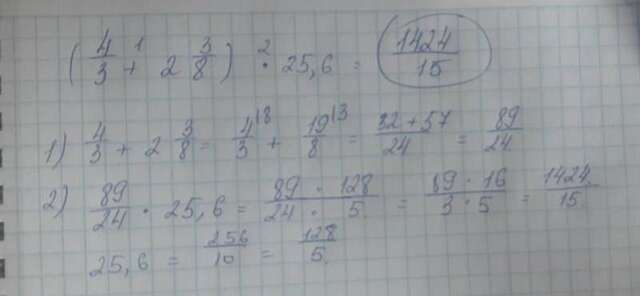 (4/3 +¹ 2 3/8) ·² 25,6 = 1424/15
1) 4/3 + 2 3/8 = 4/3 ⁸ + 19/8 ³ = 32+57/24 = 89/24
2) 89/24 · 25,6 = 89 · 128/24 · 5 = 89 · 16/3 · 5 = 1424/15
25,6 = 256/10 = 128/5